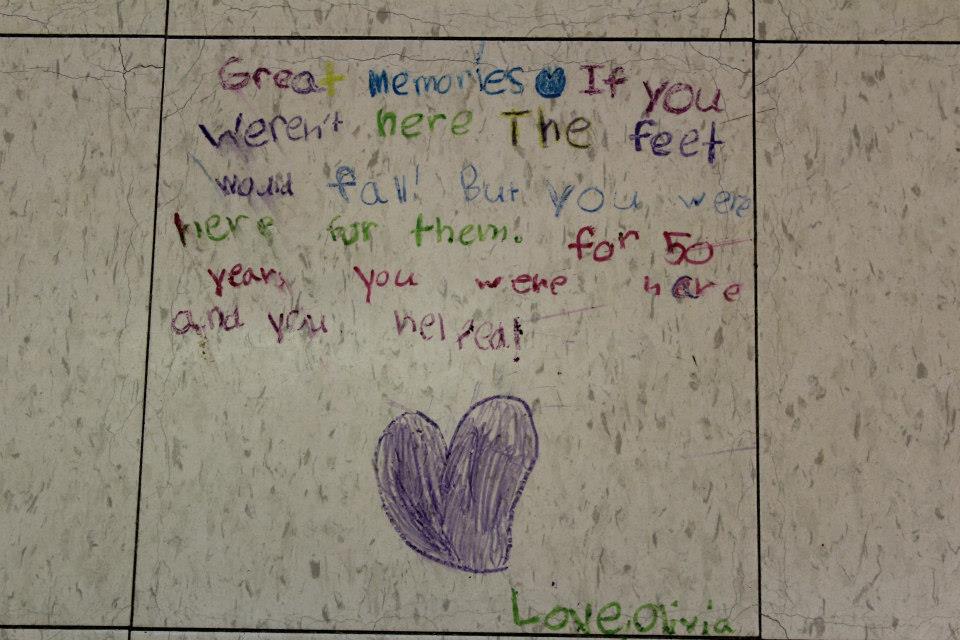 Great memories If you
Weren't here The feet
would fall! But you were
here for them. for 50
years you were here
and you helped!
Love, Olivia